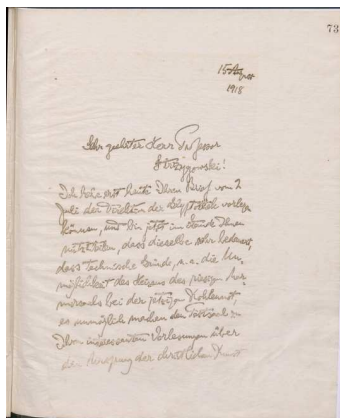 73
15 August
1918
Sehr geehrter Herr Professor
Strzygowski!
Ich habe erst heute Ihren Brief vom 2
Juli der Direktion der Glyptothek vorlegen
können, und bin jetzt im Stande Ihnen
mitzuteilen, dass dieselbe sehr bedauert,
dass technische Gründe, u.a. die Un-
möglichkeit des Heizens des
bei der jetzigen Kohlennot,
es unmöglich machen den Festsaal zu
Ihren interessanten Vorlesungen über
den Ursprung der christlichen Kunst